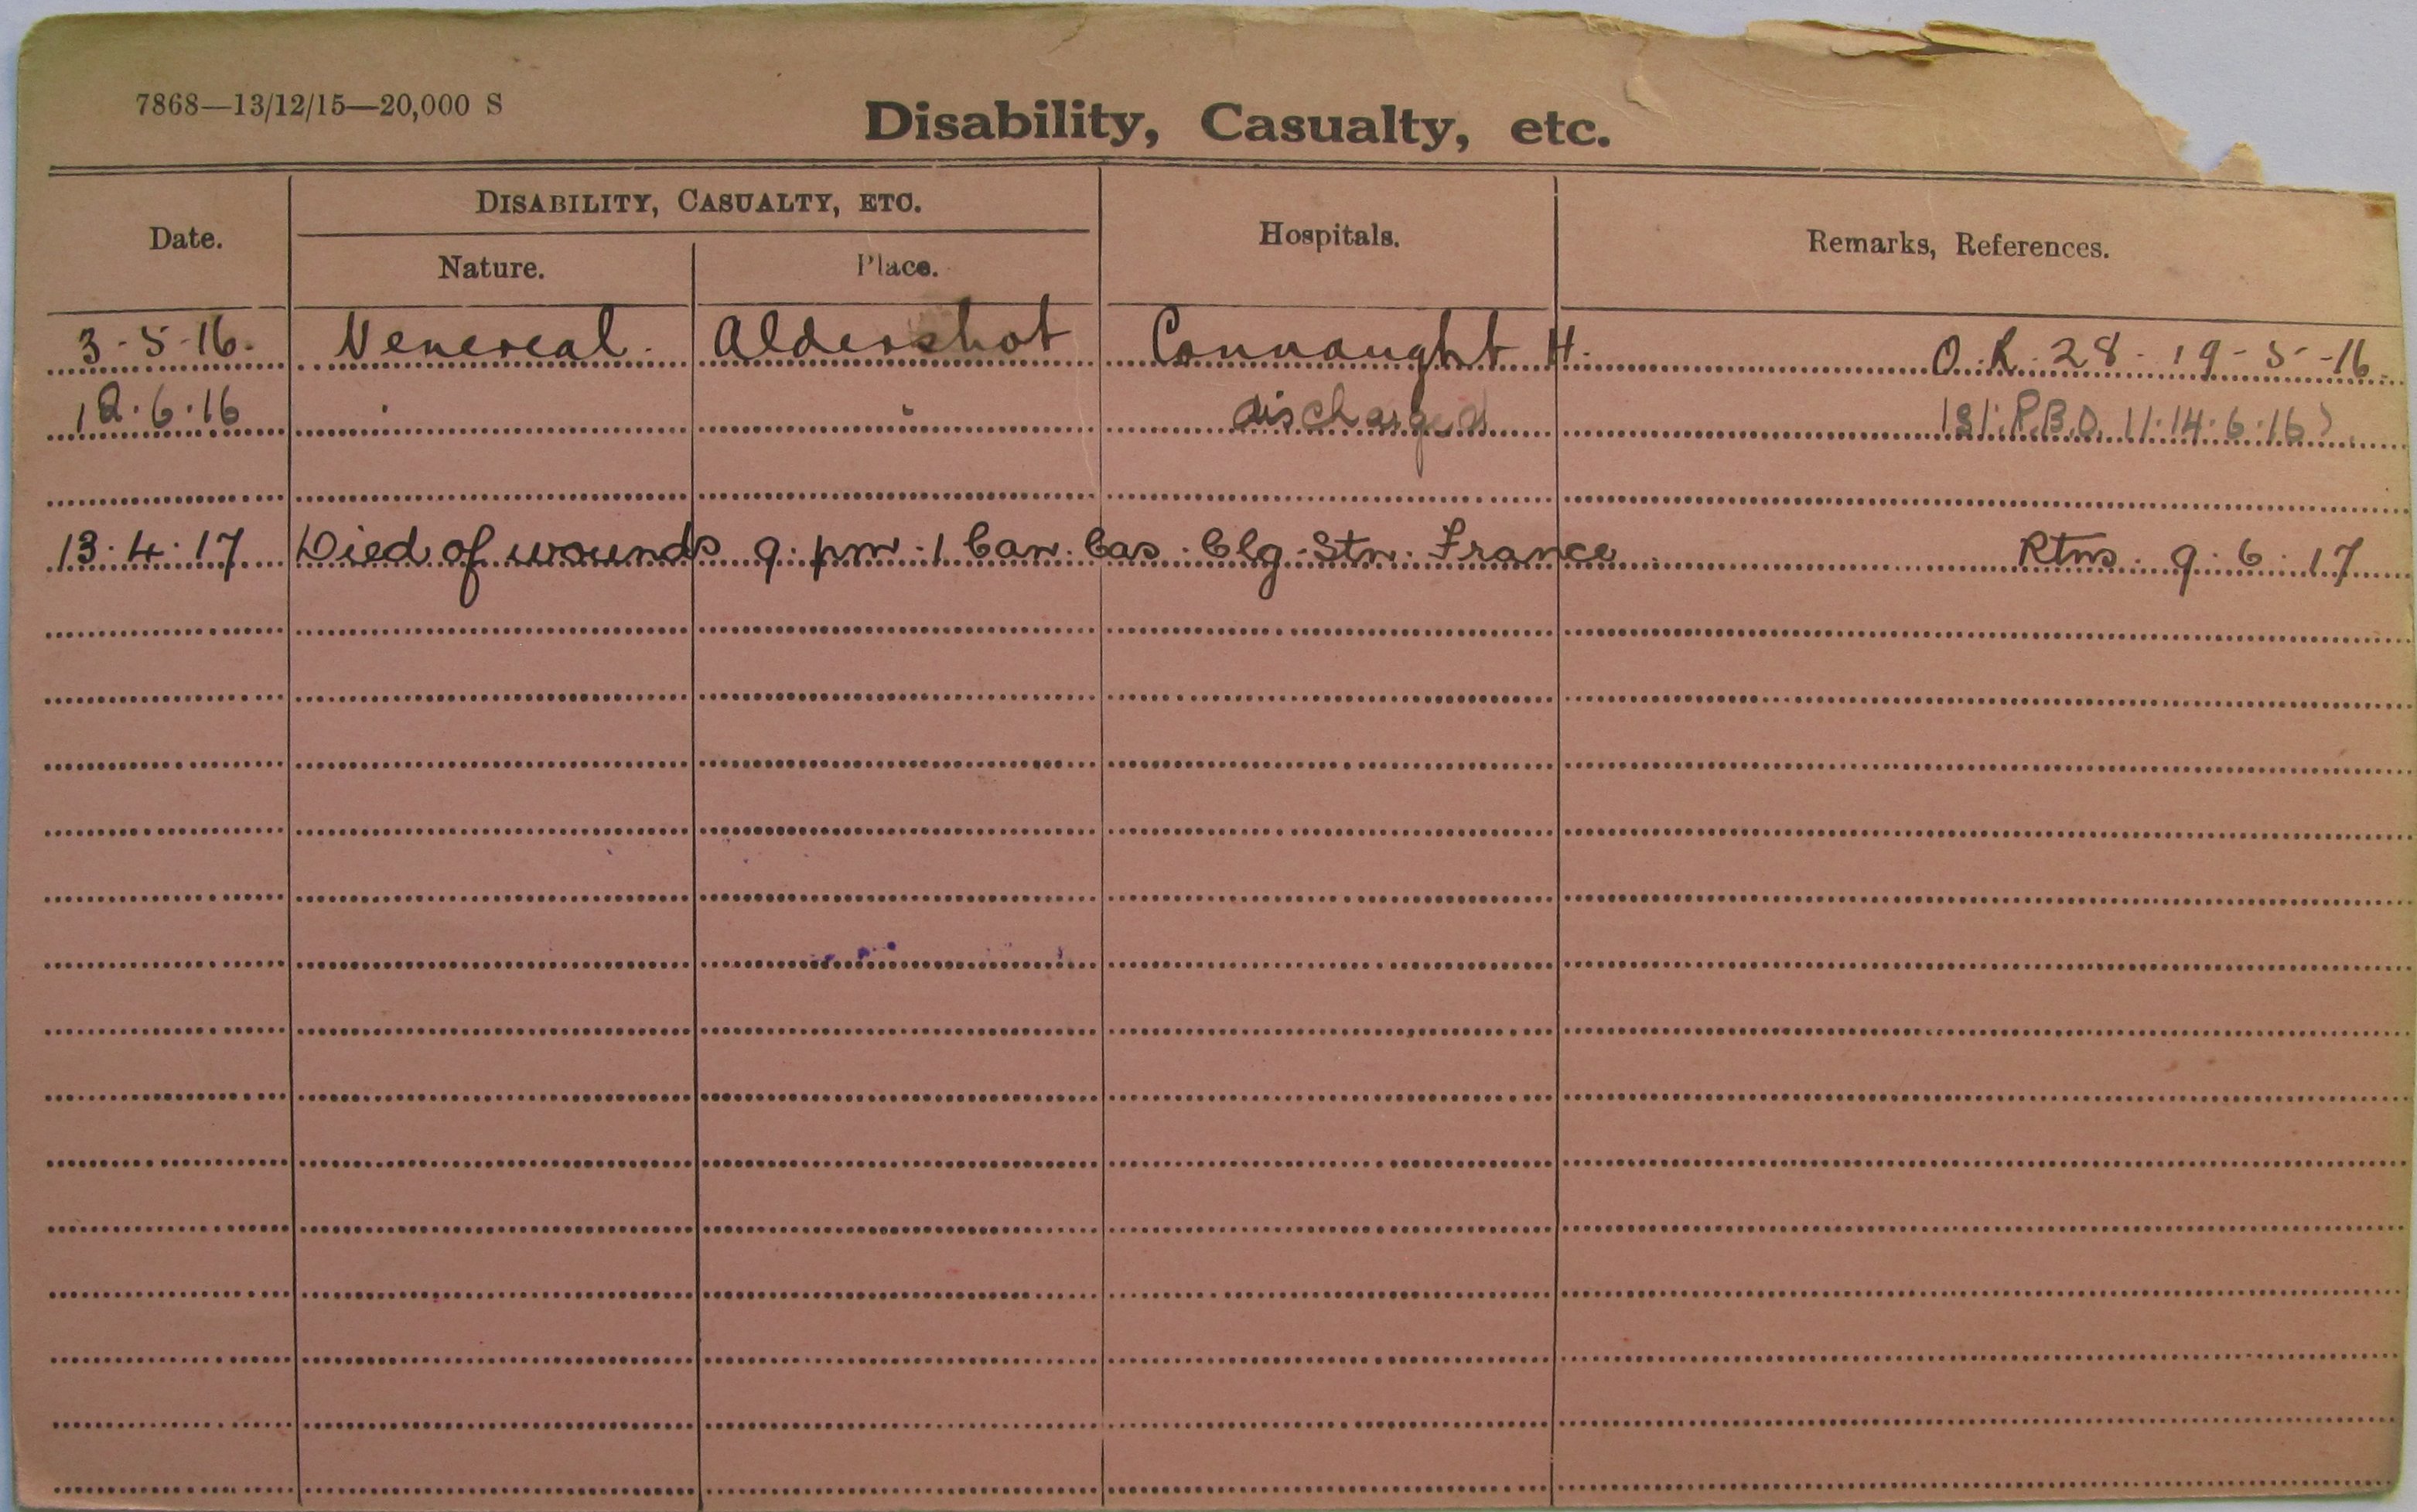 7868—13/12/15—20,000 S
Disability, Casualty, etc.
Date. DISABILITY, CASUALTY, ETC. Hospitals. Remarks, References.
Nature. Place.
3-5-16. Venereal. Aldershot Connaught H. O.R. 28. 19-5-16.
12.6.16 " " discharged 11.14.6.16)
13.4.17 Died of wounds 9.pm.1 Can. Cas. Clg. Stn. France Rtns. 9.6.17